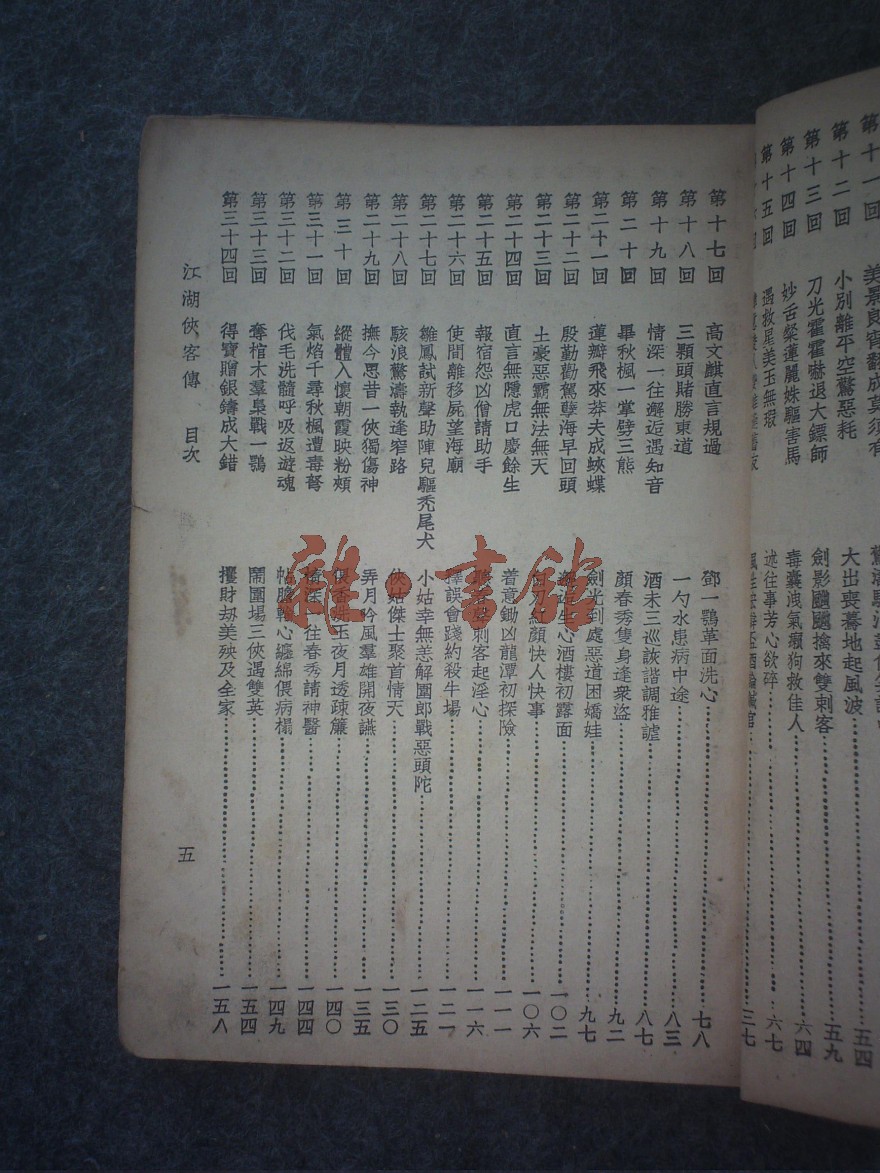 第十一回　美景良宵翻成莫須有
第十二回　小別離平空驚惡耗　大出喪驀地起風波……五四
第十三回　刀光霍霍嚇退大鏢師　劍影飀飀擒來雙刺客……五九
第十四回　妙舌粲蓮麗姝驅害馬　毒囊洩氣癩狗救佳人……六四
第十五回　遇救星美玉無瑕　述往事芳心欲碎……六七
第十七回　高文麒直言規過　鄧一鶚革面洗心……七八
第十八回　三顆頭賭勝東道　一勺水患病中途……八三
第十九回　情深一往邂逅遇知音　酒未三巡詼諧調雅謔……八七
第二十回　畢秋楓一掌劈三熊　顏春秀隻身逢衆盜……九二
第二十一回　蓮瓣飛來莽夫成蛺蝶　劍光到處惡道困嬌娃……九七
第二十二回　殷勤勸駕孽海早回頭　邂逅生心酒樓初露面……一〇二
第二十三回　土豪惡霸無法無天　白刃紅顏快人快事……一〇六
第二十四回　直言無隱虎口慶餘生　着意鋤凶龍潭初探險……一一一
第二十五回　報宿怨凶僧請助手　刺客起淫心……一一六
第二十六回　使間離移屍望海廟　釋誤會踐約殺牛場……一二一
第二十七回　雛鳳試新聲助陣兒驅禿尾犬　小姑幸無恙解圍郎戰惡頭陀……一二五
第二十八回　駭浪驚濤執逢窄路　俠姑傑士聚首情天……一三〇
第二十九回　撫今思昔一俠獨傷神　弄月吟風羣雄開夜讌……一三五
第三十回　縱體入懷朝霞映粉頰　偎香洗玉夜月透疎簾……一四〇
第三十一回　氣焰千尋秋楓遭毒弩　情深一往春秀請神醫……一四四
第三十二回　伐毛洗髓呼吸返遊魂　帖膽輸心纏綿偎病榻……一四九
第三十三回　奪棺木羣梟戰一鶚　鬧圍場三俠遇雙英……一五四
第三十四回　得寶贈銀鑄成大錯　攫財劫美殃及全家……一五八
江湖俠客傳　目次　五
雜·書館